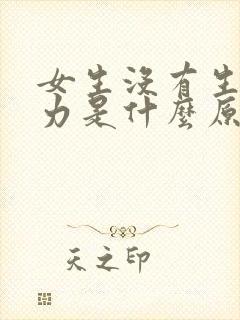 女生没有生
力是什麼原
天之印